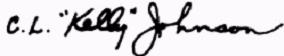 C.L. "Kelly" Johnson